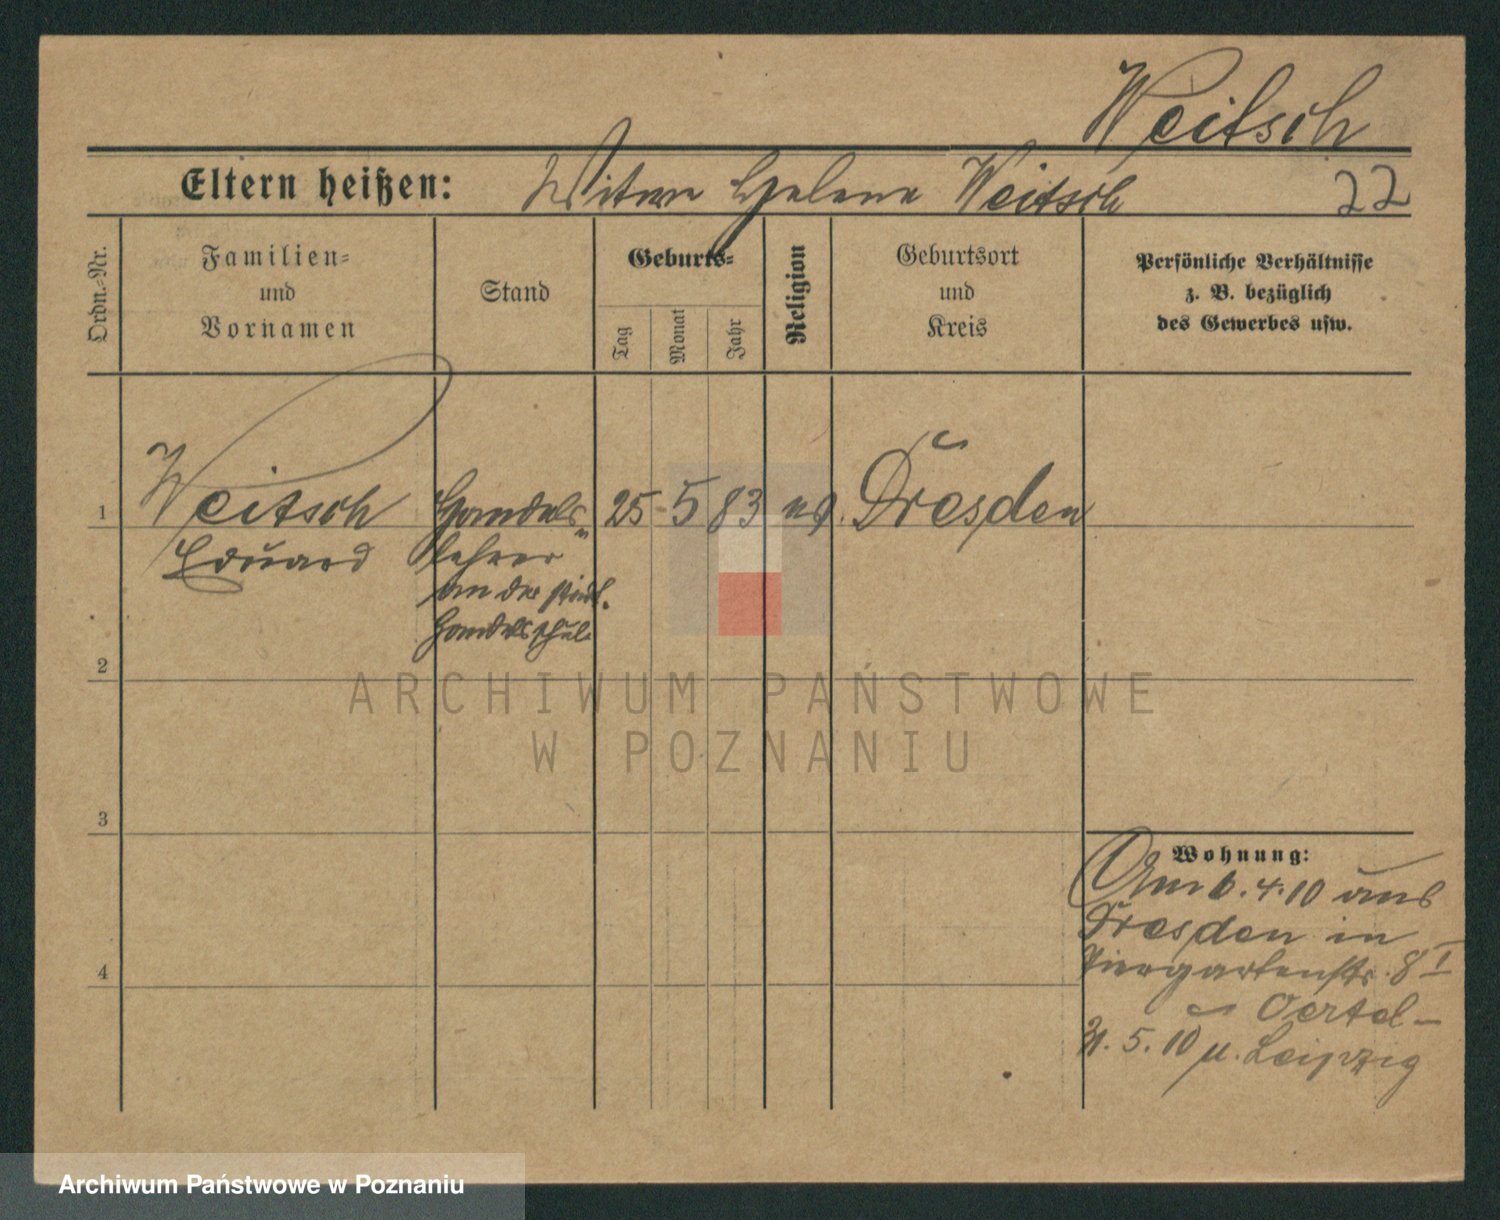 Weitsch
Eltern heißen: Witwe Helene Weitsch 22
Ordn.-Nr.
Familien-
und
Vornamen
Stand
Geburts-
Tag
Monat
Jahr
Religion
Geburtsort
und
Kreis
Persönliche Verhältnisse
z. B. bezüglich
des Gewerbes usw.
1 Weitsch Handels- 25 5 83 ev. Dresden
Eduard lehrer
an der städt.
Handelsschule
2
ARCHIWUM PAŃSTWOWE
W POZNANIU
3
4
Wohnung:
Am 6.4.10 aus
Dresden in
Tiergartenstr. 8 I
Oertel
5.10 n. Leipzig
Archiwum Państwowe w Poznaniu